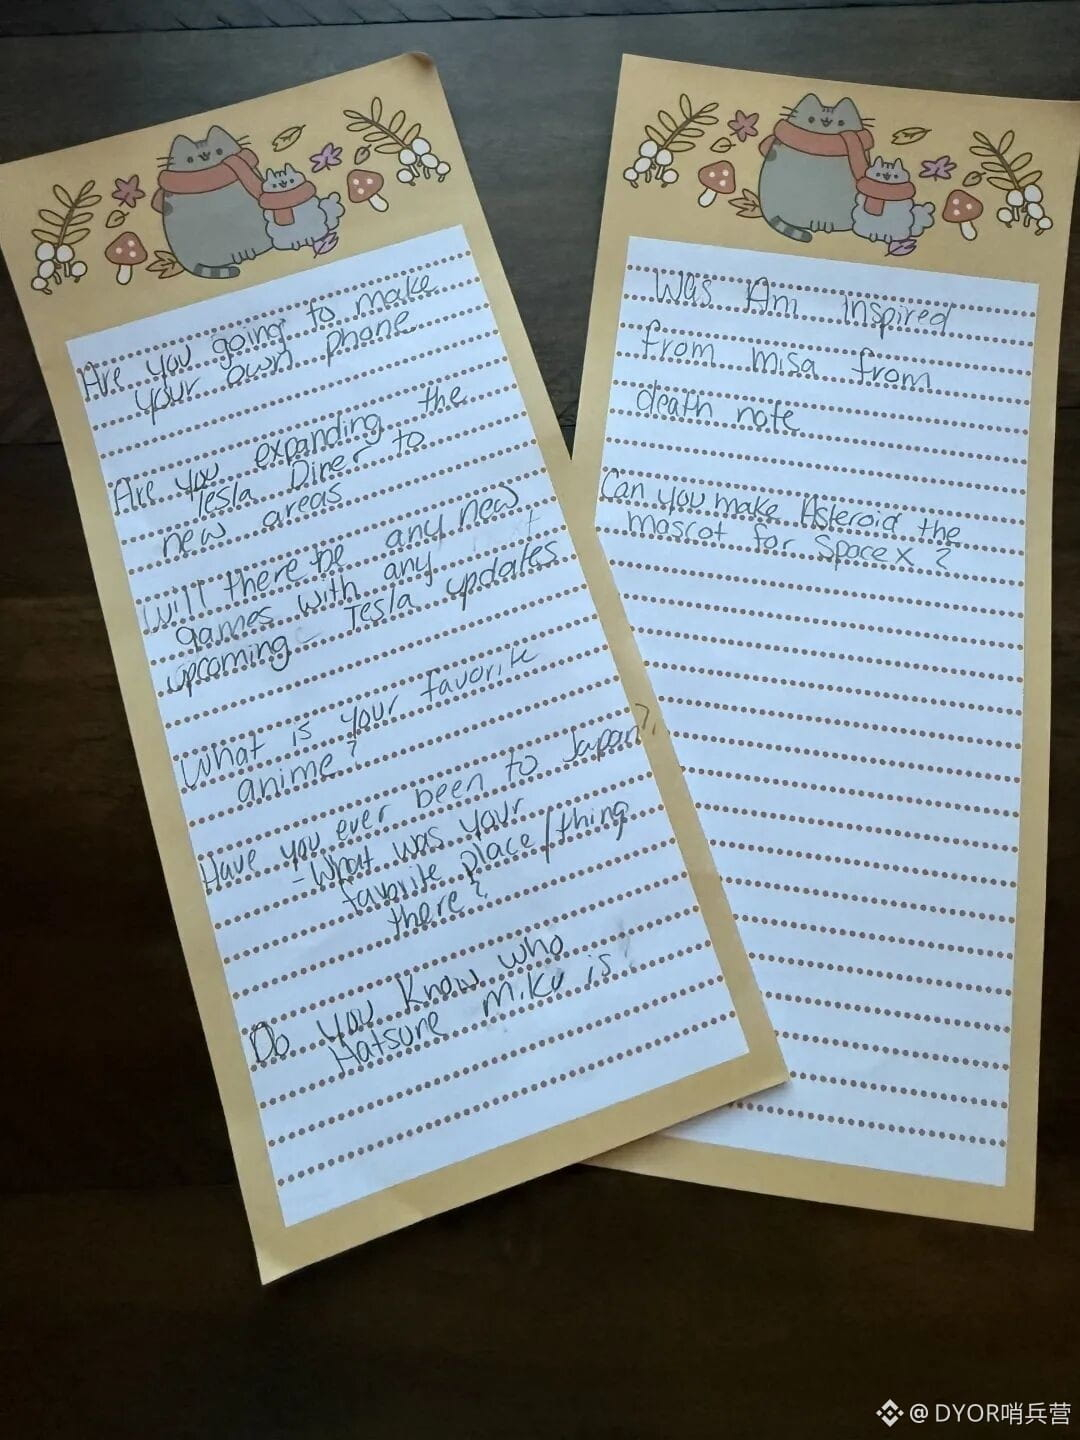 Are you going to make
your own phone
Are you expanding the
Tesla Diner to
new areas
Will there be any new
games with any
upcoming Tesla updates
What is your favorite
anime?
Have you ever been to Japan?
- What was your
favorite place/thing
there?
Do you know who
Hatsune Miku is?
Was Am inspired
from misa from
death note
Can you make Asteroid the
mascot for SpaceX?
@DYOR哨兵营